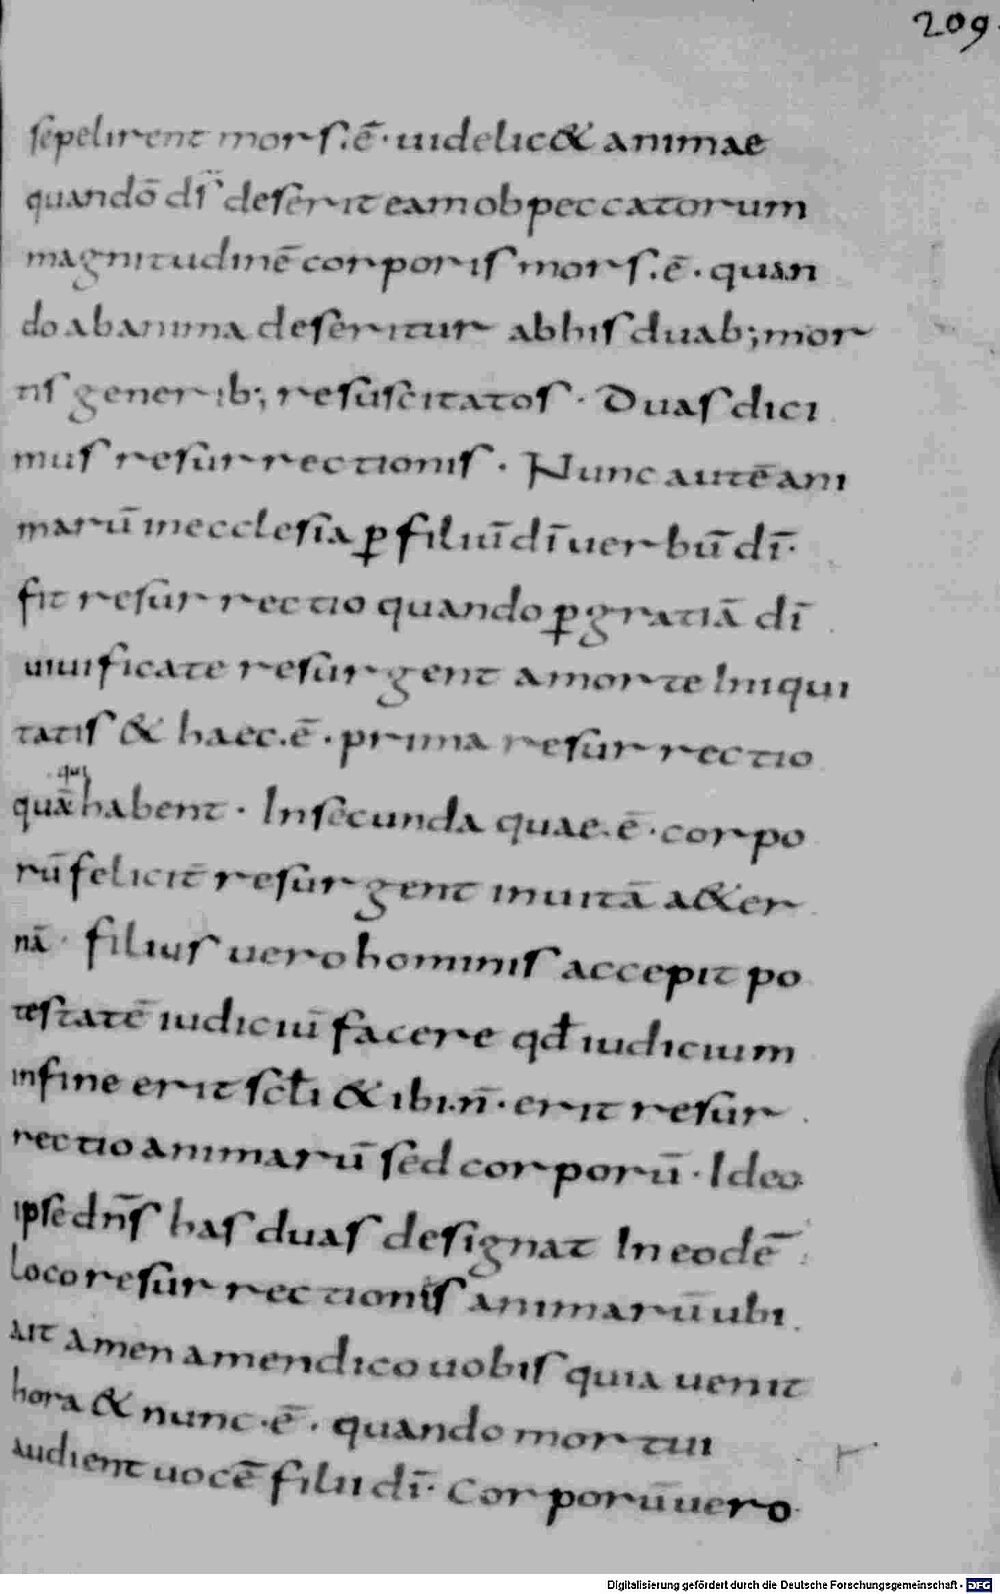 209
sepelirent mors.ē.uidelic& animae
quandō ds̄ deserit eam ob peccatorum
magnitudinē corporis mors.ē. quan
do ab anima deseritur ab his duab; mor
tis generib; resuscitatos. Duas dici
mus resurrectionis. Nunc autē ani
marū in ecclesia ꝑ filiū dī uerbū dī.
fit resurrectio quando ꝑ gratiā dī
uiuificate resurgent a morte Iniqui
tatis & haec.ē. prima resurrectio
qui
quā habent. In secunda quae.ē.corpo
rū felicit̄ resurgent in uitā a&er
nā. filius uero hominis accepit po
testatē iudiciū facere qđ iudicium
in fine erit scƚi & ibi.n̄.erit resur
rectio animarū sed corporū. Ideo
ipse dn̄s has duas designat In eodē
loco resurrectionis animarū ubi
ait amen amen dico uobis quia uenit
hora & nunc.ē. quando mortui
audient uocē filii dī. Corporū uero
Digitalisierung gefördert durch die Deutsche Forschungsgemeinschaft - DFG